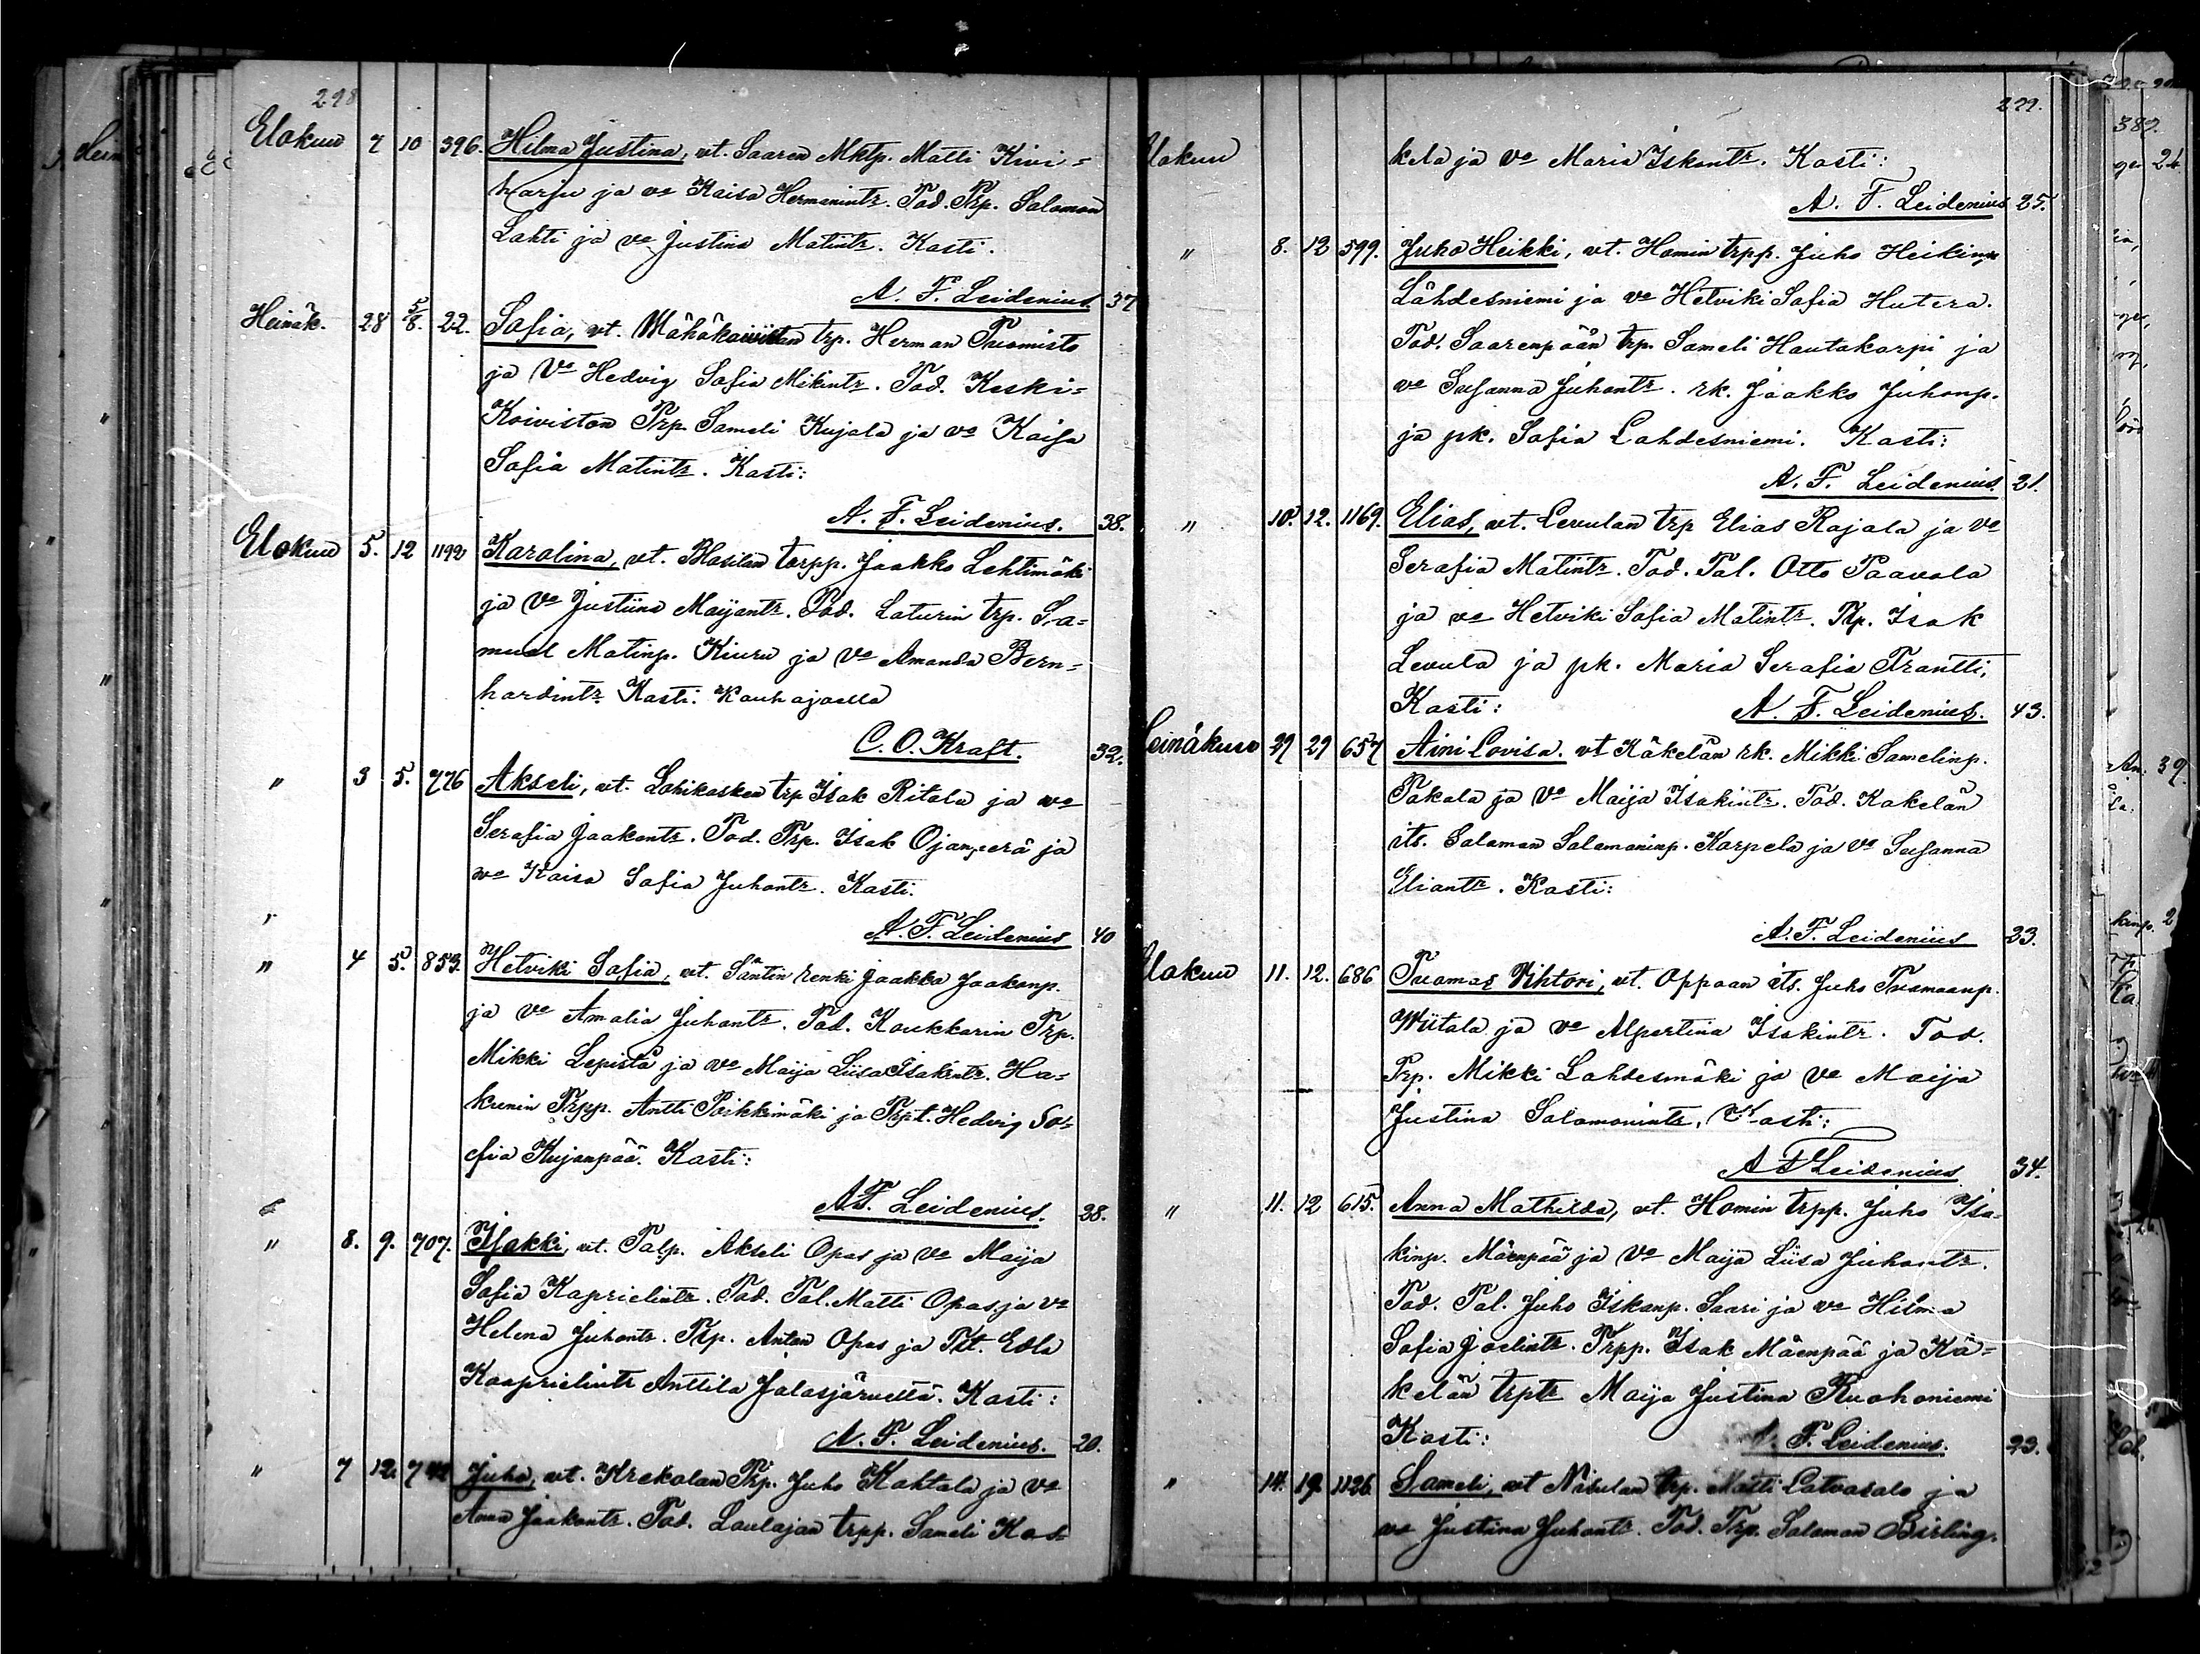 298
Elokuu 7 10 396. Hilma Justina, vt. Saaren Mktp. Matti Kivi=
harju ja vo Kaisa Hermanintr. Tod. Trp. Salomon
Lahti ja vo Justina Matintr. Kasti.
A. F. Leidenius 37
Heinäk. 28 5/8. 22. Sofia, vt. trp. Herman Tuomisto
ja Vo Hedvig Sofia Mikintr. Tod. Keski=
Koiviston Trp. Sameli Kujala ja vo Kaisa
Sofia Matintr. Kasti:
A. F. Leidenius. 38.
Elokuu 5. 12 1192 Karolina, vt. torpp. Jaakko Lehtimäki
ja Vo Justiina Maijantr. Tod. Laturin trp. Sa=
muel Matinp. Kiuru ja Vo Amanda Bern=
hardintr. Kasti. Kauhajoella
C. O. Kraft. 32.
" 3 5. 776 Akseli, vt. Lohikosken trp Isak Ritala ja vo
Serafia Jaakontr. Tod. Trp. Isak Ojanperä ja
vo Kaisa Sofia Juhontr. Kasti.
A. F. Leidenius 40
" 4 5. 853. Hetviki Sofia, vt. Säntin renki Jaakko Jaakonp.
ja Vo Amalia Juhontr. Tod. Koukkarin Trp.
Mikki Lepistö ja Vo Maija Liisa Isakintr. Ha=
kunin Trpp. Antti Poikkimäki ja Trpt. Hedvig So=
fia Kujanpää. Kasti:
A. F. Leidenius. 28.
" 8. 9. 707. Isakki, vt. Palp. Akseli Opas ja Vo Maija
Sofia Kaprielintr. Tod. Tal. Matti Opas ja vo
Helena Juhontr. Tlp. Anton Opas ja Tlt. Edla
Kaaprielintr Anttila Jalasjärveltä. Kasti:
A. F. Leidenius. 20.
" 7 12. Juho, vt. Krekolan Trp. Juho Kohtala ja Vo
Anna Jaakontr. Tod. Laulajan trpp. Sameli Kos=
299.
Elokuu kela ja Vo Maria Iskontr. Kasti:
A. F. Leidenius 25.
" 8. 12 599. Juho Heikki, vt. Homin trpp. Juho Heikinp
Lähdesniemi ja vo Hetviki Sofia Hutera.
Tod. Saarenpään trp. Sameli Hautakorpi ja
vo Susanna Juhontr. rk. Jaakko Juhonp.
ja pk. Sofia Lahdesniemi. Kasti:
A. F. Leidenius. 21.
" 10. 12. 1169. Elias, vt. Levulan trp Elias Rajala ja Vo
Serafia Matintr. Tod. Tal. Otto Paavola
ja vo Hetviki Sofia Matintr. Tlp. Isak
Levula ja pk. Maria Serafia Trantti,
Kasti: A. F. Leidenius. 43.
Heinäkuu 29 29 657 Aini Lovisa. vt Käkelän rk. Mikki Samelinp.
Pakala ja Vo Maija Isakintr. Tod. Kakelän
its. Salomon Salomoninp. Karpela ja Vo Susanna
Eliantr. Kasti:
A. F. Leidenius 23.
Elokuu 11. 12. 686 Tuomas Vihtori, vt. Oppaan its. Juho Tuomaanp.
Wiitala ja vo Alpertina Isakintr. Tod.
Trp. Mikki Lahdesmäki ja Vo Maija
Justina Salomonintr. Kasti:
A F Leidenius 34.
" 11. 12 615. Anna Mathilda, vt. Homin trpp. Juho Isa=
kinp. Mäenpää ja Vo Maija Liisa Juhontr.
Tod. Tal. Juho Iskanp. Saari ja vo Hilma
Sofia Joelintr. Trpp. Isak Mäenpää ja Kä=
kelän trptr Maija Justina Ruohoniemi
Kasti: A. F. Leidenius.
" 14. 19. 1126. Sameli, vt Nisulan trp. Matti Latvasalo ja
vo Justina Juhontr. Tod. Trp. Salomon Birling.